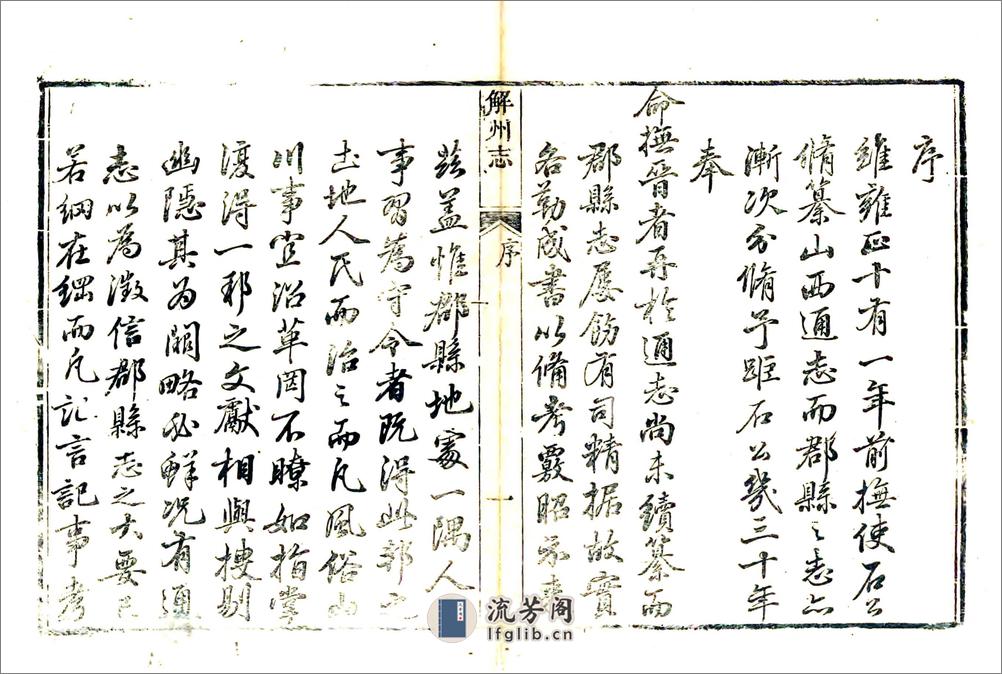 序
維雍正十有一年前撫使石公
脩纂山西通志而郡縣之志亦
漸次分脩予距石公幾三十年
奉
命撫晋者再於通志尚未續纂而
郡縣志屡飭有司精据故實
各勒成書以備考覈昭示來
解州志
序
一
兹蓋惟郡縣地處一隅人
事習為守令者既得此邦之
土地人民而治之而凡風俗山
川事宜沿革罔不瞭如指掌
復得一邦之文獻相與搜剔
幽隱其為闕略必鮮况有通
志以為徵信郡縣志之大要已
若綱在綱而凡記言記事考
流芳阁
lfglib.cn